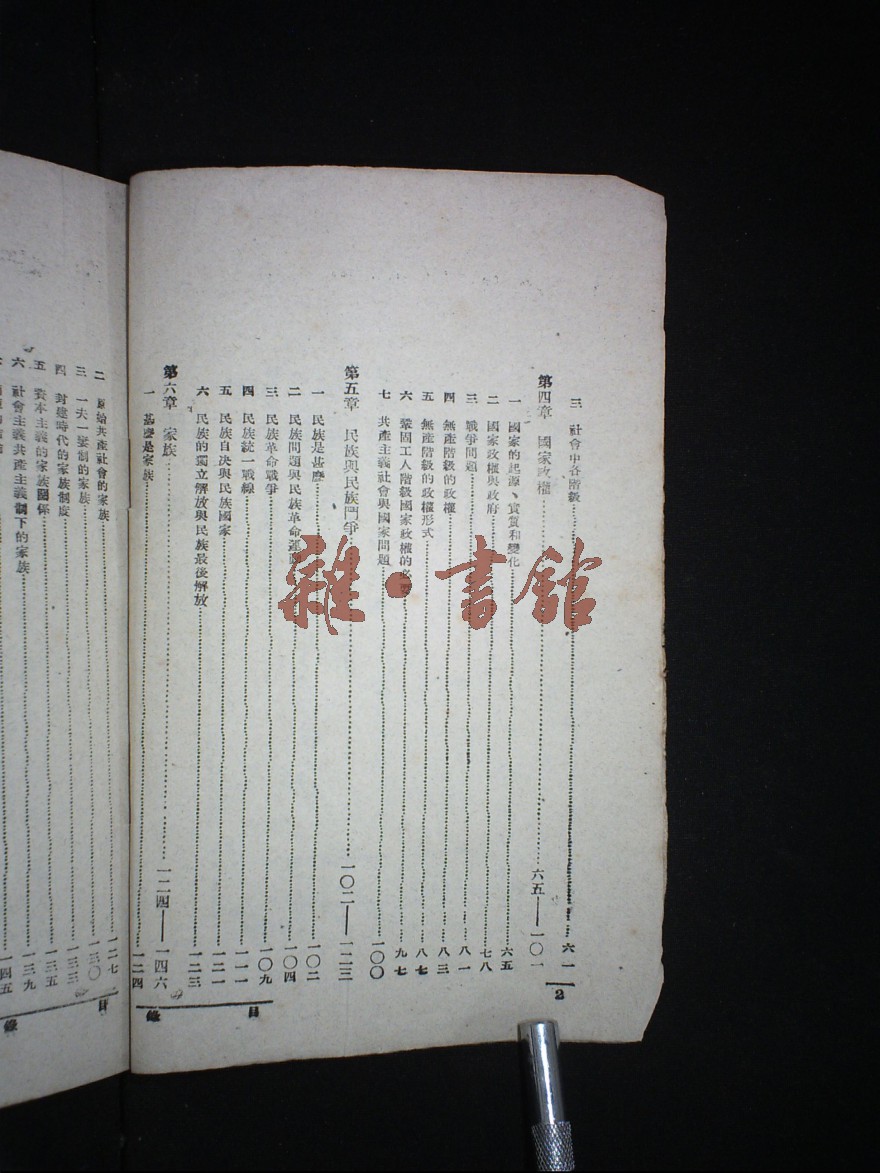 三 社會中各階級 六一
第四章 國家政權 六五——一〇一
一 國家的起源、實質和變化 六五
二 國家政權與政府 七八
三 戰爭問題 八一
四 無產階級的政權 八三
五 無產階級的政權形式 八七
六 鞏固工人階級國家政權的必要 九七
七 共產主義社會與國家問題 一〇〇
第五章 民族與民族鬥爭 一〇二——一二三
一 民族是甚麼 一〇二
二 民族問題與民族革命運動 一〇四
三 民族革命戰爭 一〇九
四 民族統一戰線 一一一
五 民族自決與民族國家 一二一
六 民族的獨立解放與民族最後解放 一二三
第六章 家族 一二四——一四六
一 甚麼是家族 一二四
目錄
2
二 原始共產社會的家族 一二七
三 一夫一妻制的家族 一三〇
四 封建時代的家族制度 一三三
五 資本主義的家族關係 一三五
六 社會主義共產主義制下的家族 一三九
一四五
目錄
雜·書館